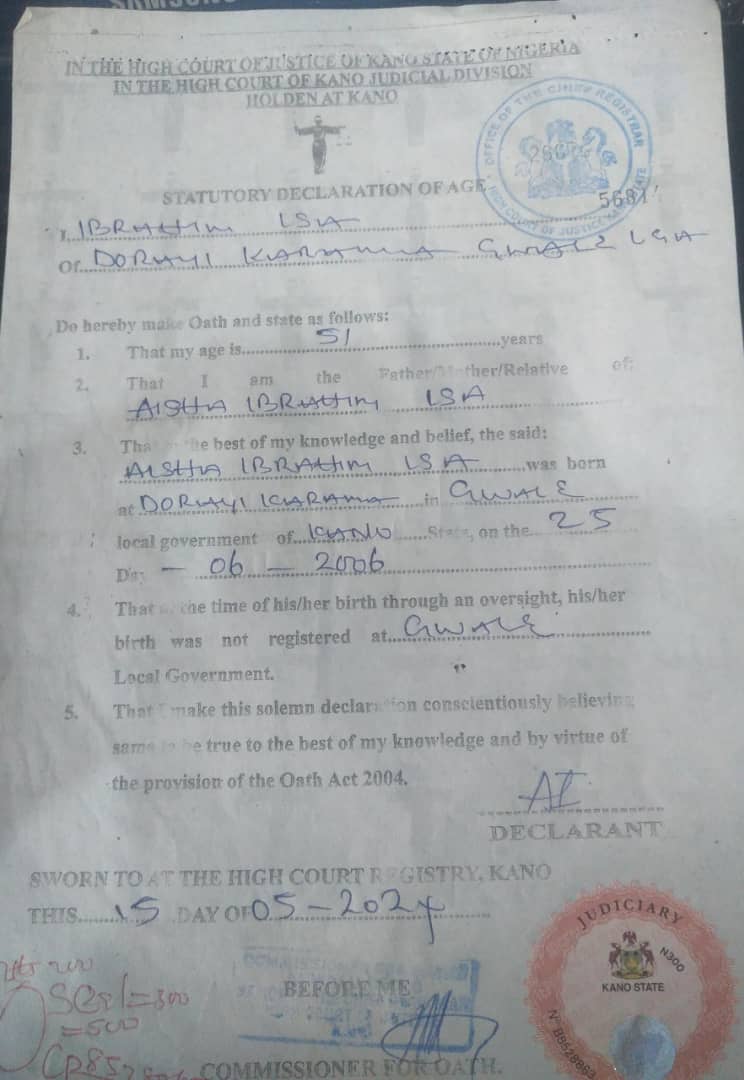 IN THE HIGH COURT OF JUSTICE OF KANO STATE OF NIGERIA
IN THE HIGH COURT OF KANO JUDICIAL DIVISION
HOLDEN AT KANO
OFFICE OF THE CHIEF REGISTRAR
HIGH COURT OF JUSTICE KANO STATE
STATUTORY DECLARATION OF AGE
I, IBRAHIM ISA
Of DORAYI KARAMA GWALE LGA
Do hereby make Oath and state as follows:
1. That my age is 51 years
2. That I am the Father/Mother/Relative of:
AISHA IBRAHIM ISA
3. That to the best of my knowledge and belief, the said:
AISHA IBRAHIM ISA was born
at DORAYI KARAMA in GWALE
local government of KANO State, on the 25
Day - 06 - 2006
4. That at the time of his/her birth through an oversight, his/her
birth was not registered at GWALE
Local Government.
5. That I make this solemn declaration conscientiously believing
same to be true to the best of my knowledge and by virtue of
the provision of the Oath Act 2004.
AI
DECLARANT
SWORN TO AT THE HIGH COURT REGISTRY, KANO
THIS 15 DAY OF 05-2024
BEFORE ME
COMMISSIONER FOR OATH.
=500
JUDICIARY
N300
KANO STATE